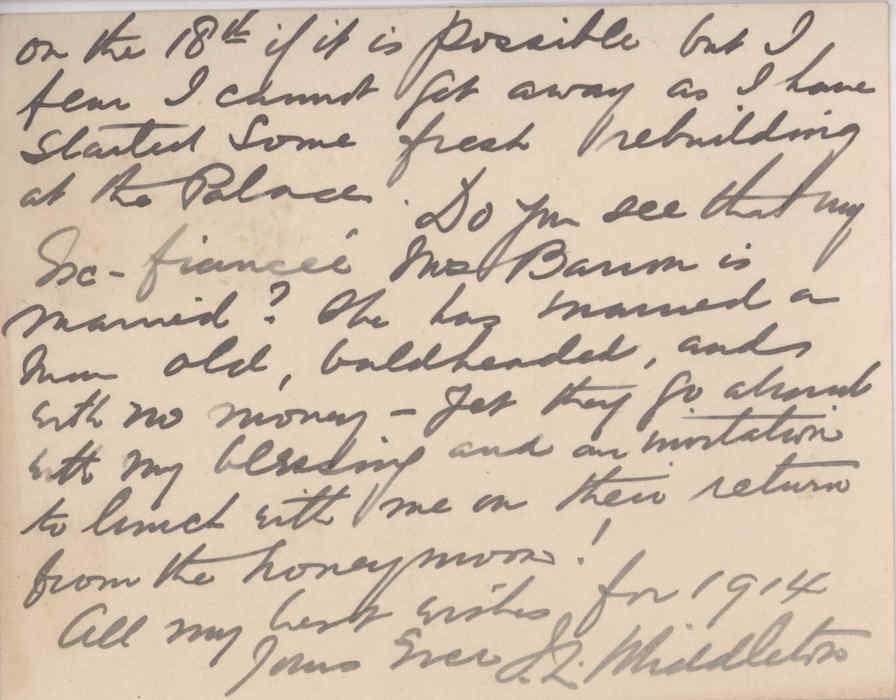 on the 18th if it is possible but I
fear I cannot get away as I have
started some fresh rebuilding
at the Palace. Do you see that my
Ex-fiancée Mrs Barron is
married? She has married a
man old, baldheaded, and
with no money - yet they go abroad
with my blessing and an invitation
to lunch with me on their return
from the honeymoon!
All my best wishes for 1914
Yours Ever J.L. Middleton